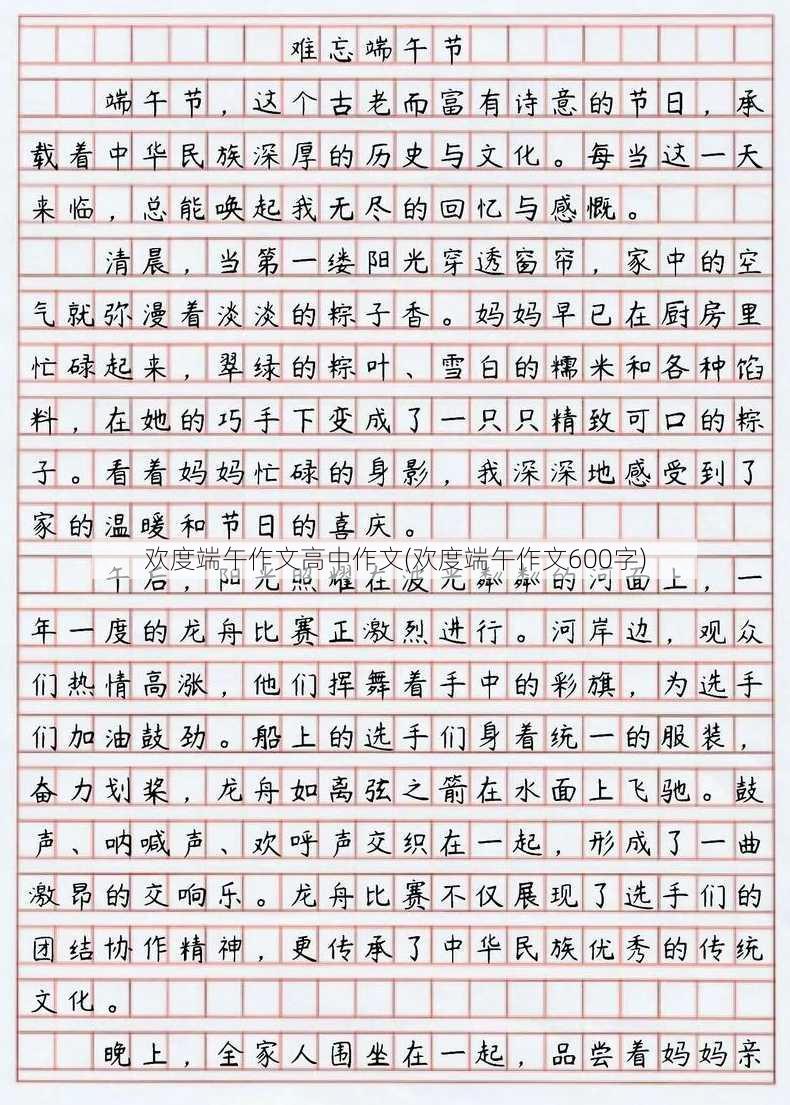 难忘端午节
端午节，这个古老而富有诗意的节日，承
载着中华民族深厚的历史与文化。每当这一天
来临，总能唤起我无尽的回忆与感慨。
清晨，当第一缕阳光穿透窗帘，家中的空
气就弥漫着淡淡的粽子香。妈妈早已在厨房里
忙碌起来，翠绿的粽叶、雪白的糯米和各种馅
料，在她的巧手下变成了一只只精致可口的粽
子。看着妈妈忙碌的身影，我深深地感受到了
家的温暖和节日的喜庆。
欢度端午作文高中作文(欢度端午作文600字)
午后，阳光照耀在波光粼粼的河面上，一
年一度的龙舟比赛正激烈进行。河岸边，观众
们热情高涨，他们挥舞着手中的彩旗，为选手
们加油鼓劲。船上的选手们身着统一的服装，
奋力划桨，龙舟如离弦之箭在水面上飞驰。鼓
声、呐喊声、欢呼声交织在一起，形成了一曲
激昂的交响乐。龙舟比赛不仅展现了选手们的
团结协作精神，更传承了中华民族优秀的传统
文化。
晚上，全家人围坐在一起，品尝着妈妈亲